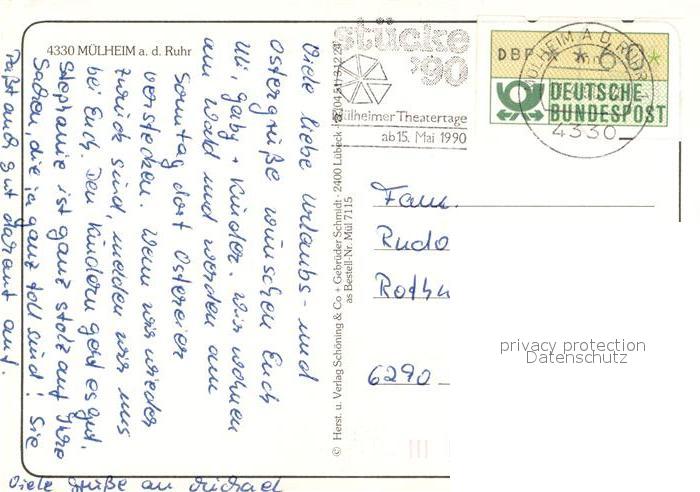 4330 MÜLHEIM a. d. Ruhr
Viele liebe Urlaubs- und
Ostergrüße wünschen Euch
Uli, Gaby + Kinder. Wir wohnen
am Wald und werden am
Sonntag dort Ostereier
verstecken. Wenn wir wieder
zurück sind, melden wir uns
bei Euch. Den Kindern geht es gut.
Stephanie ist ganz stolz auf Ihre
Sachen, die ja ganz toll sind! Sie
paßt auch gut darauf auf.
Viele Grüße an Michael
© Herst. u. Verlag Schöning & Co + Gebrüder Schmidt · 2400 Lübeck
as Bestell-Nr. Mül 7115
stücke
'90
Mülheimer Theatertage
ab 15. Mai 1990
DBP
60
DEUTSCHE
BUNDESPOST
MÜLHEIM A D RUHR
4330
Fam.
Rudo
Roth
6290
privacy protection
Datenschutz